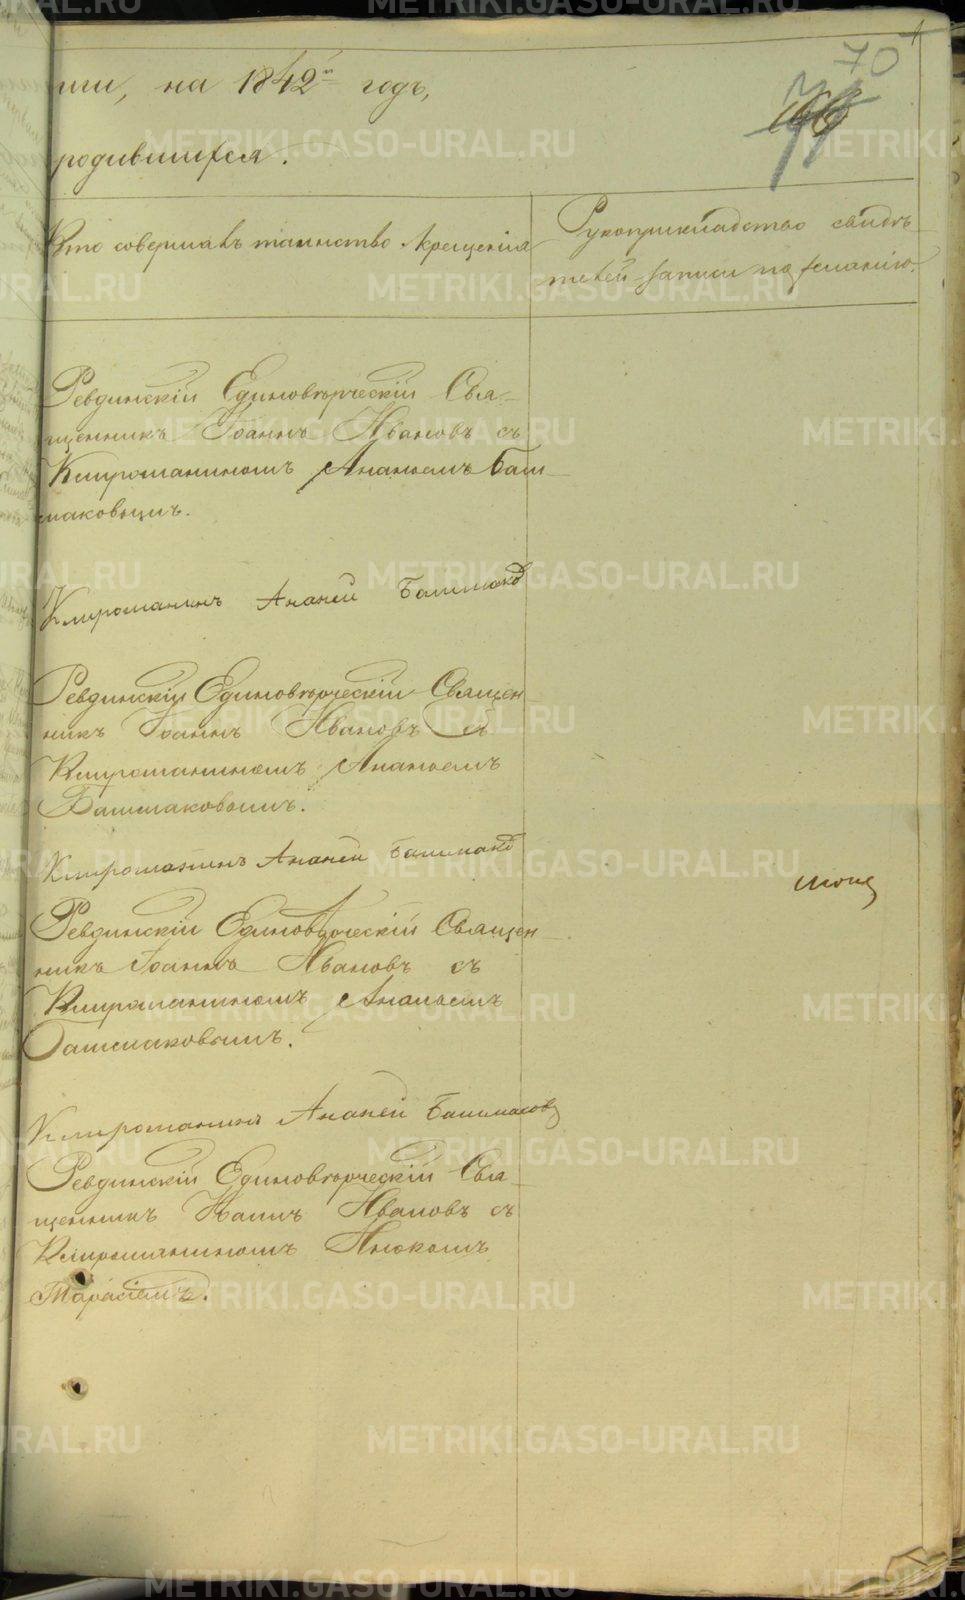 70
ти, на 1842й годъ,
родившихся.
Кто совершалъ таинство крещенія
Рукоприкладство свидѣ
телей записи по желанію.
Ревдинскій Единовѣрческій Свя-
щенникъ Іоаннъ Ивановъ съ
Клирошаниномъ Ананьемъ Баш-
маковымъ.
Клирошанинъ Ананій Башмаковъ
Ревдинскій Единовѣрческій Священ
никъ Іоаннъ Ивановъ съ
Клирошаниномъ Ананьемъ
Башмаковымъ.
Клирошанинъ Ананій Башмаковъ
Ревдинскій Единовѣрческій Священ-
никъ Іоаннъ Ивановъ съ
Клирошаниномъ Ананьемъ
Башмаковымъ.
Клирошанинъ Ананій Башмаковъ
Ревдинскій Единовѣрческій Свя-
щенникъ Ивановъ съ
Клирошаниномъ
METRIKI.GASO-URAL.RU